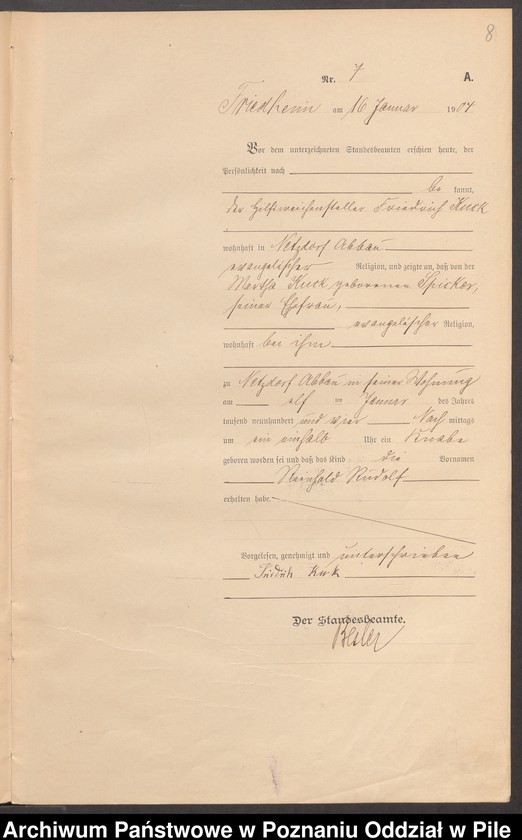 8
Nr. 7 A.
Friedheim am 16 Januar 1904
Vor dem unterzeichneten Standesbeamten erschien heute, der
Persönlichkeit nach
be kannt,
der Hilfsweichensteller Friedrich Kuck
wohnhaft in Netzdorf Abbau
evangelischer Religion, und zeigte an, daß von der
Martha Kuck geborenen Spicker,
seiner Ehefrau,
evangelischer Religion,
wohnhaft bei ihm
zu Netzdorf Abbau in seiner Wohnung
am elf ten Januar des Jahres
tausend neunhundert und vier Nach mittags
um ein einhalb Uhr ein Knabe
geboren worden sei und daß das Kind die Vornamen
Reinhold Rudolf
erhalten habe.
Vorgelesen, genehmigt und unterschrieben
Friedrich Kuck
Der Standesbeamte.
Archiwum Państwowe w Poznaniu Oddział w Pile